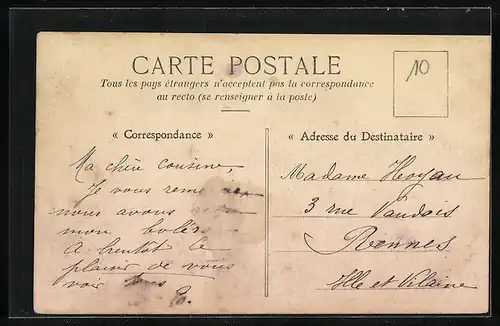 10
CARTE POSTALE
Tous les pays étrangers n'acceptent pas la correspondance
au recto (se renseigner à la poste)
« Correspondance »
« Adresse du Destinataire »
Ma chère cousine,
Je vous
nous avons
mon
A bientot le
plaisir de vous
voir
Madame
3 rue Vaudois
Rennes
Ille et Vilaine